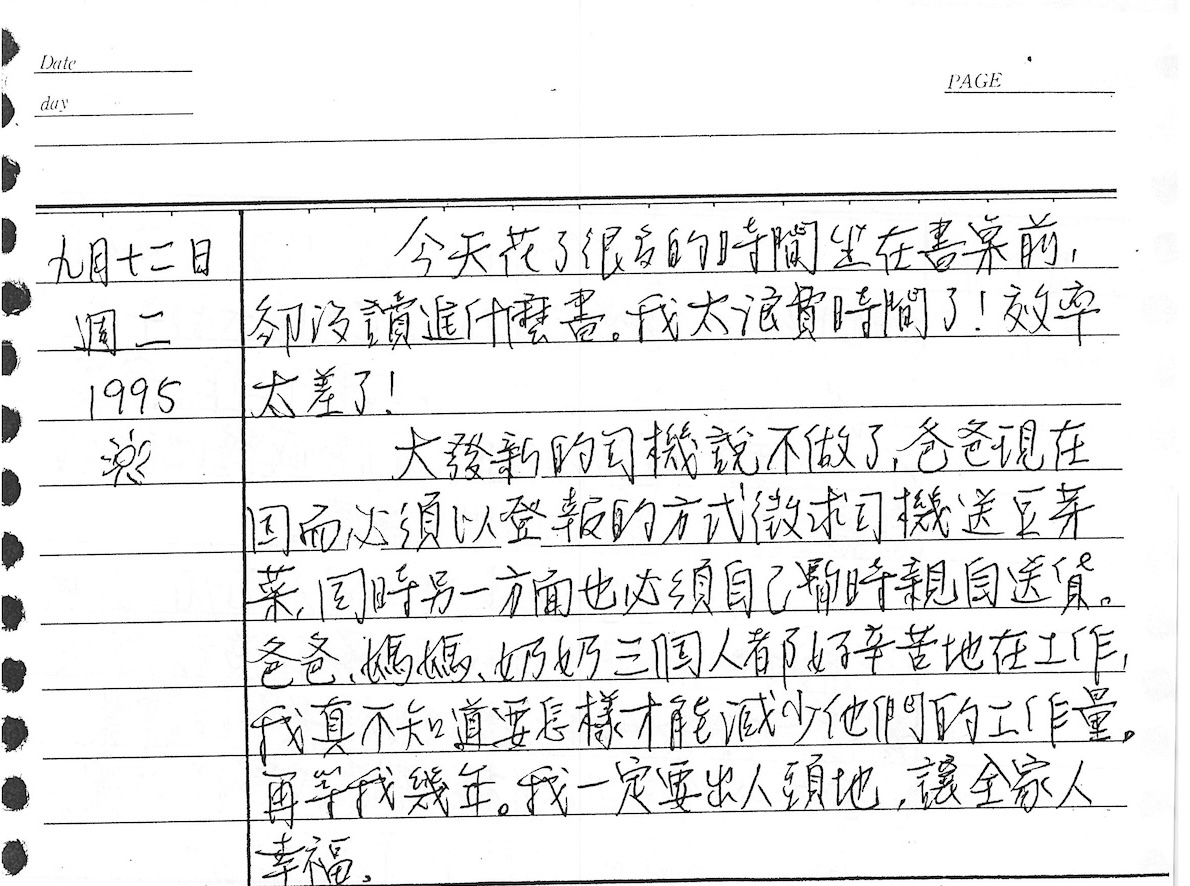 Date
day
PAGE
九月十二日
週二
1995
今天花了很多的時間坐在書桌前,
卻沒讀進什麼書。我太浪費時間了!效率
太差了!
大發新的司機說不做了,爸爸現在
因而必須以登報的方式徵求司機送豆芽
菜,同時另一方面也必須自己暫時親自送貨。
爸爸、媽媽、奶奶三個人都好辛苦地在工作,
我真不知道要怎樣才能減少他們的工作量。
再等我幾年。我一定要出人頭地,讓全家人
幸福。